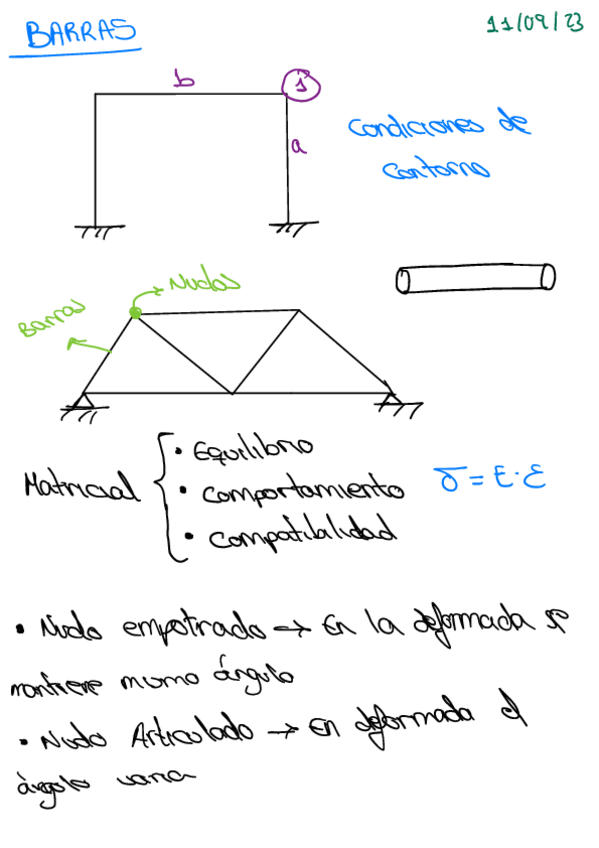 BARRAS
11/09/23
b
1
a
Condiciones de
contorno
Nudos
Barras
Matricial
• Equilibrio
• comportamiento
σ = E · ε
• compatibilidad
• Nudo empotrado → En la deformada se
mantiene mismo ángulo
• Nudo Articulado → en deformada el
ángulo varia